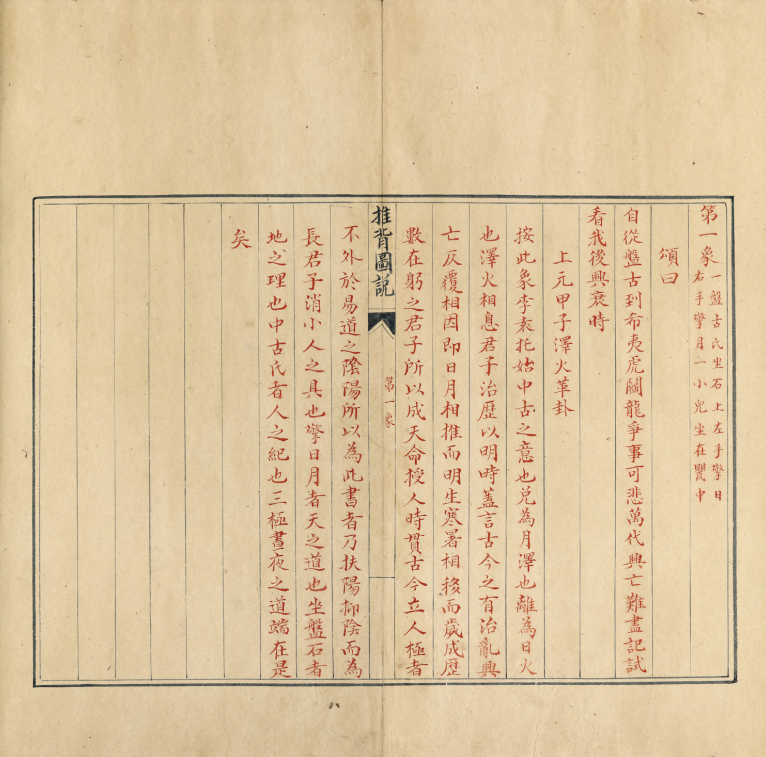 第一象
一盤古氏坐石上左手擎日
右手擎月一小兒坐在甖中
頌曰
自從盤古到希夷虎鬭龍爭事可悲萬代興亡難盡記試
看我後興衰時
上元甲子澤火革卦
按此象李袁托始中古之意也兌為月澤也離為日火
也澤火相息君子治歷以明時蓋言古今之有治亂興
亡反覆相因即日月相推而明生寒暑相移而歲成歷
數在躬之君子所以成天命授人時貫古今立人極者
推背圖說
第一象
不外於易道之陰陽所以為此書者乃扶陽抑陰而為
長君子消小人之具也擎日月者天之道也坐盤石者
地之理也中古氏者人之紀也三極晝夜之道端在是
矣